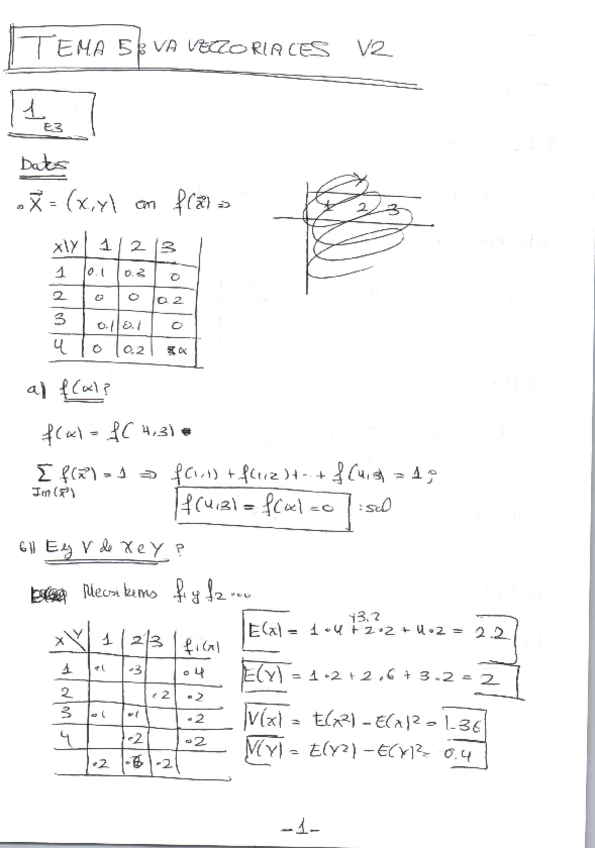 TEMA 5: VA VECTORIALES V2
1
E3
Datos
. X⃗ = (X,Y) con f(x⃗) ⇒
Y
1 2 3
X\Y 1 2 3
1 0.1 0.3 0
2 0 0 0.2
3 0.1 0.1 0
4 0 0.2 α
a) f(α)?
f(α) = f( 4,3)
∑ f(x⃗) = 1 ⇒ f(1,1) + f(1,2) + ... + f(4,3) = 1;
Im(x⃗)
f(4,3) = f(α) = 0 : sol
b) E y V de X e Y ?
Necesitamos f1 y f2 ...
X\Y 1 2 3 f1(x)
1 .1 .3 .4
2 .2 .2
3 .1 .1 .2
4 .2 .2
.2 .6 .2
+3.2
E(x) = 1·4 + 2·2 + 4·2 = 2.2
E(Y) = 1·2 + 2.6 + 3.2 = 2
V(x) = E(x²) - E(x)² = 1.36
V(Y) = E(Y²) - E(Y)² = 0.4
-1-